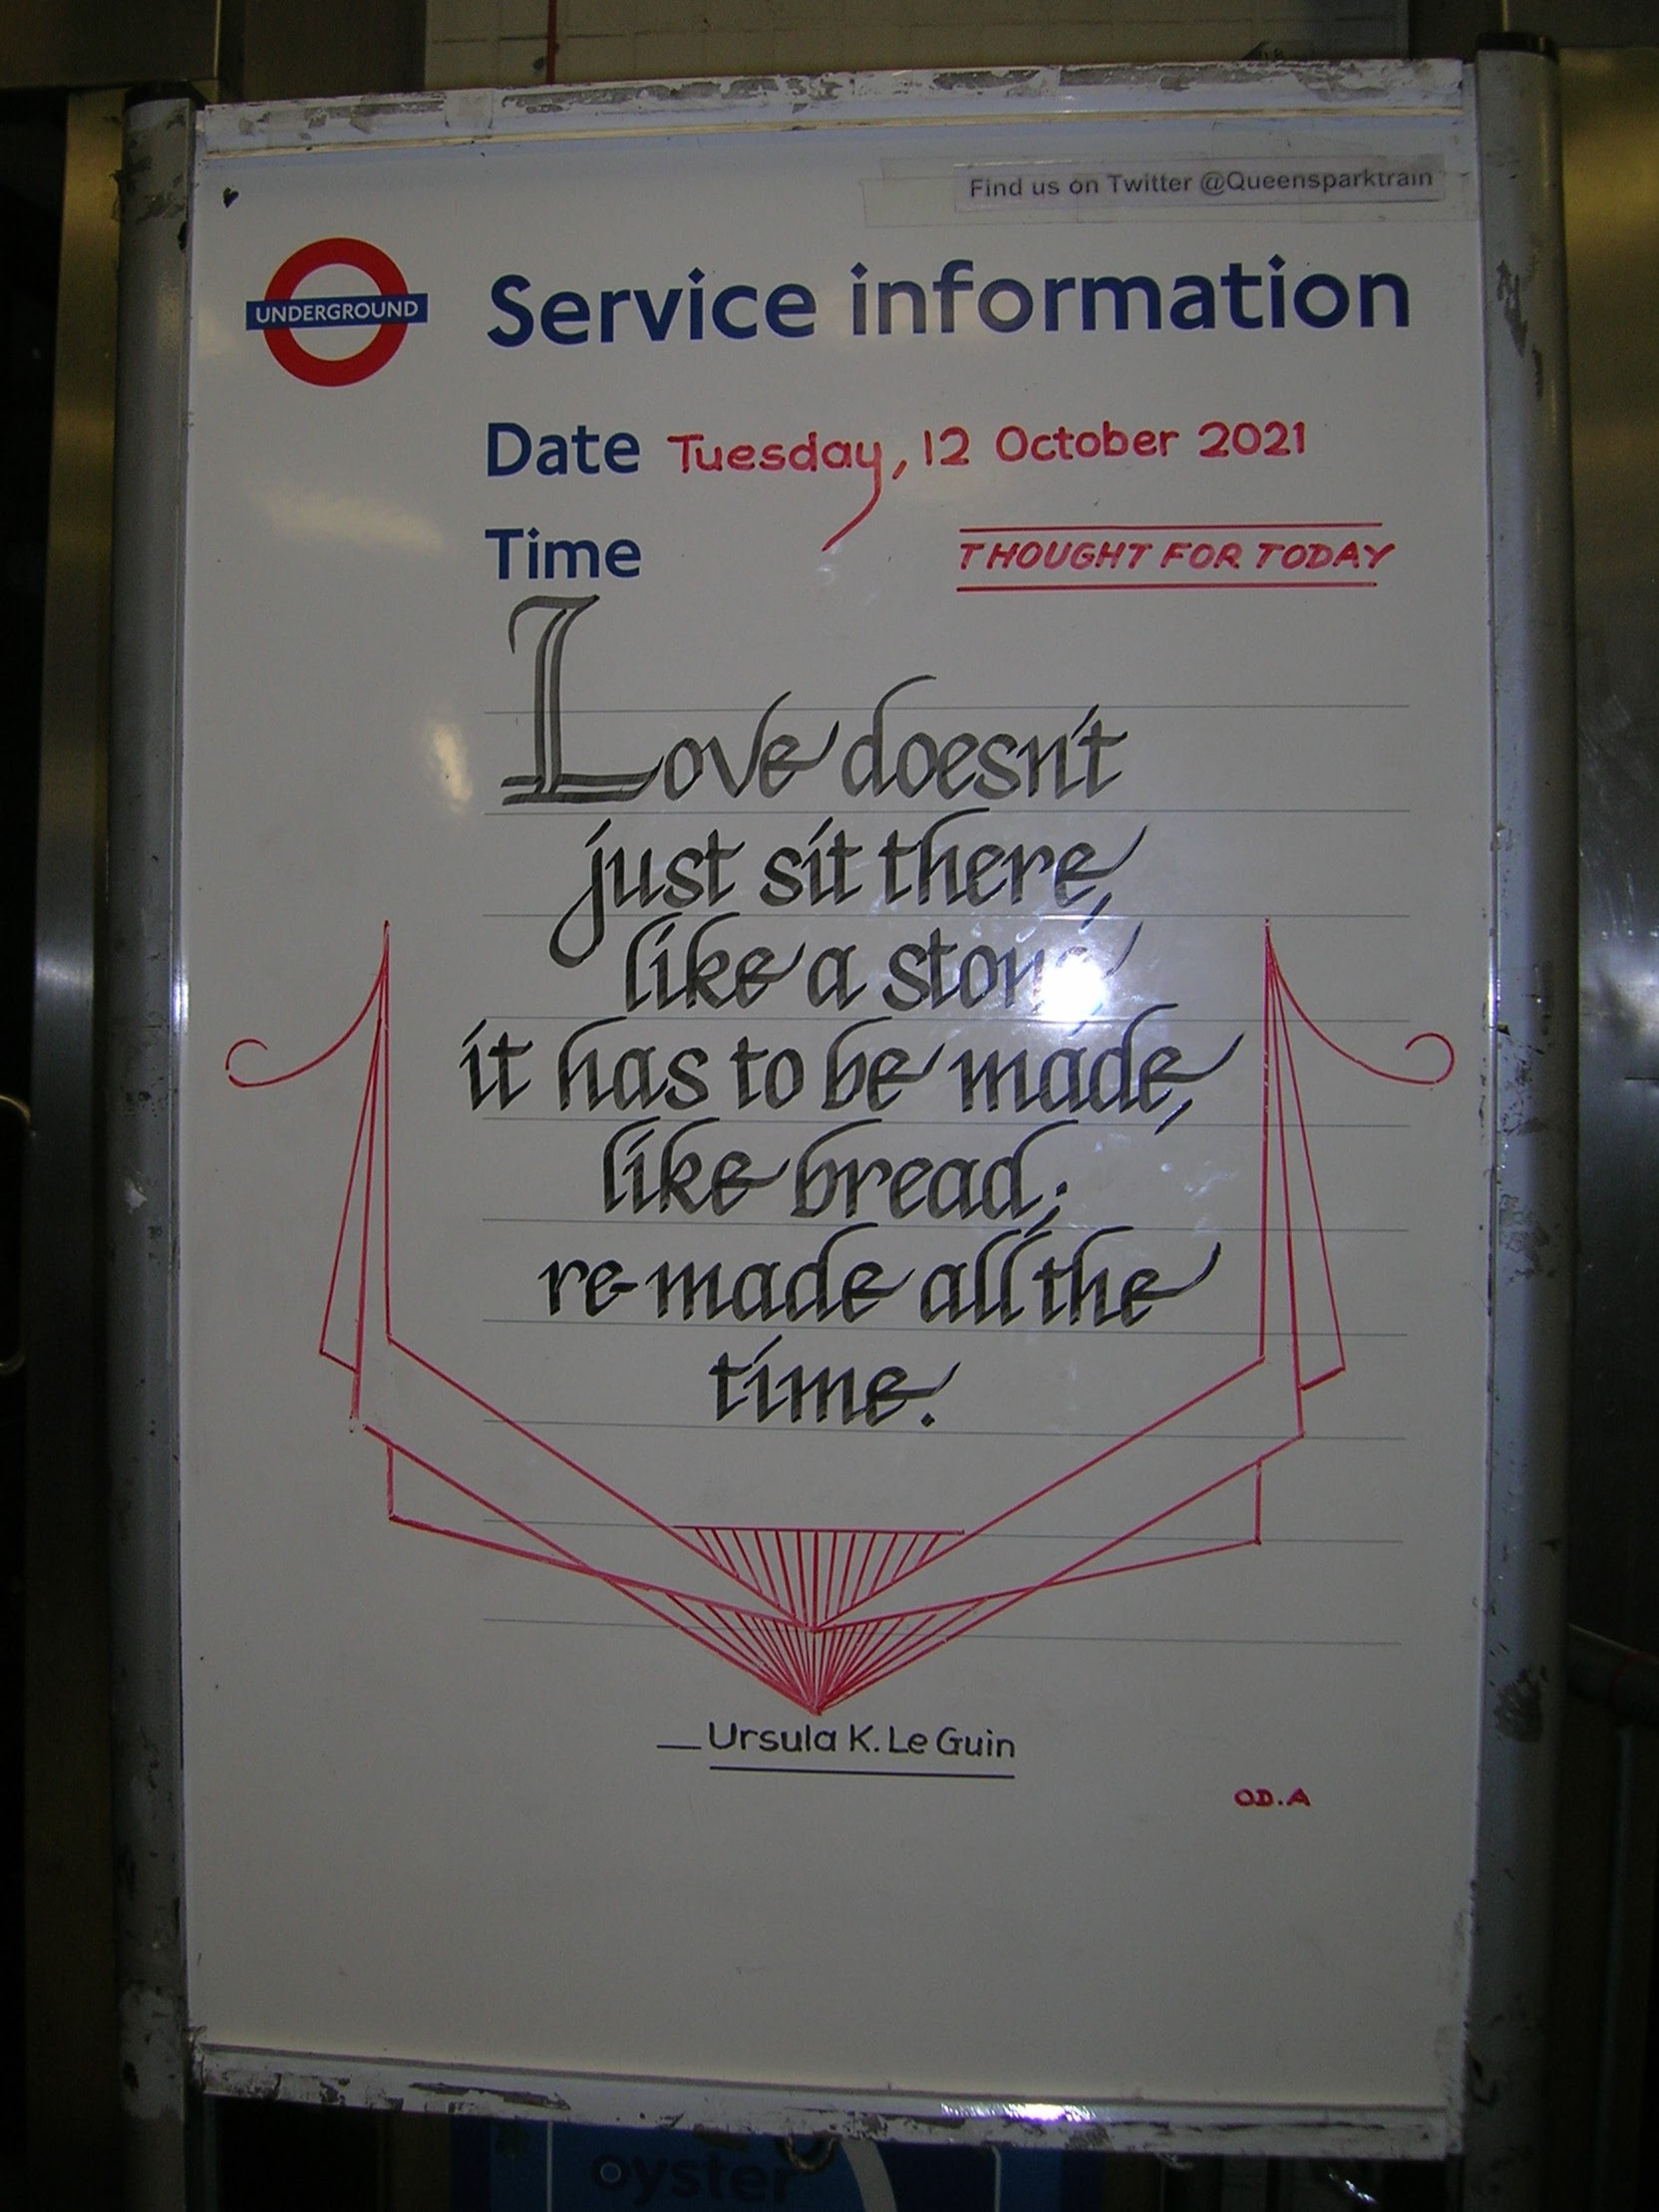 Find us on Twitter @Queensparktrain
UNDERGROUND
Service information
Date Tuesday, 12 October 2021
Time
THOUGHT FOR TODAY
Love doesn't
just sit there,
like a stone
it has to be made,
like bread;
re-made all the
time.
Ursula K. Le Guin
OD.A
oyster